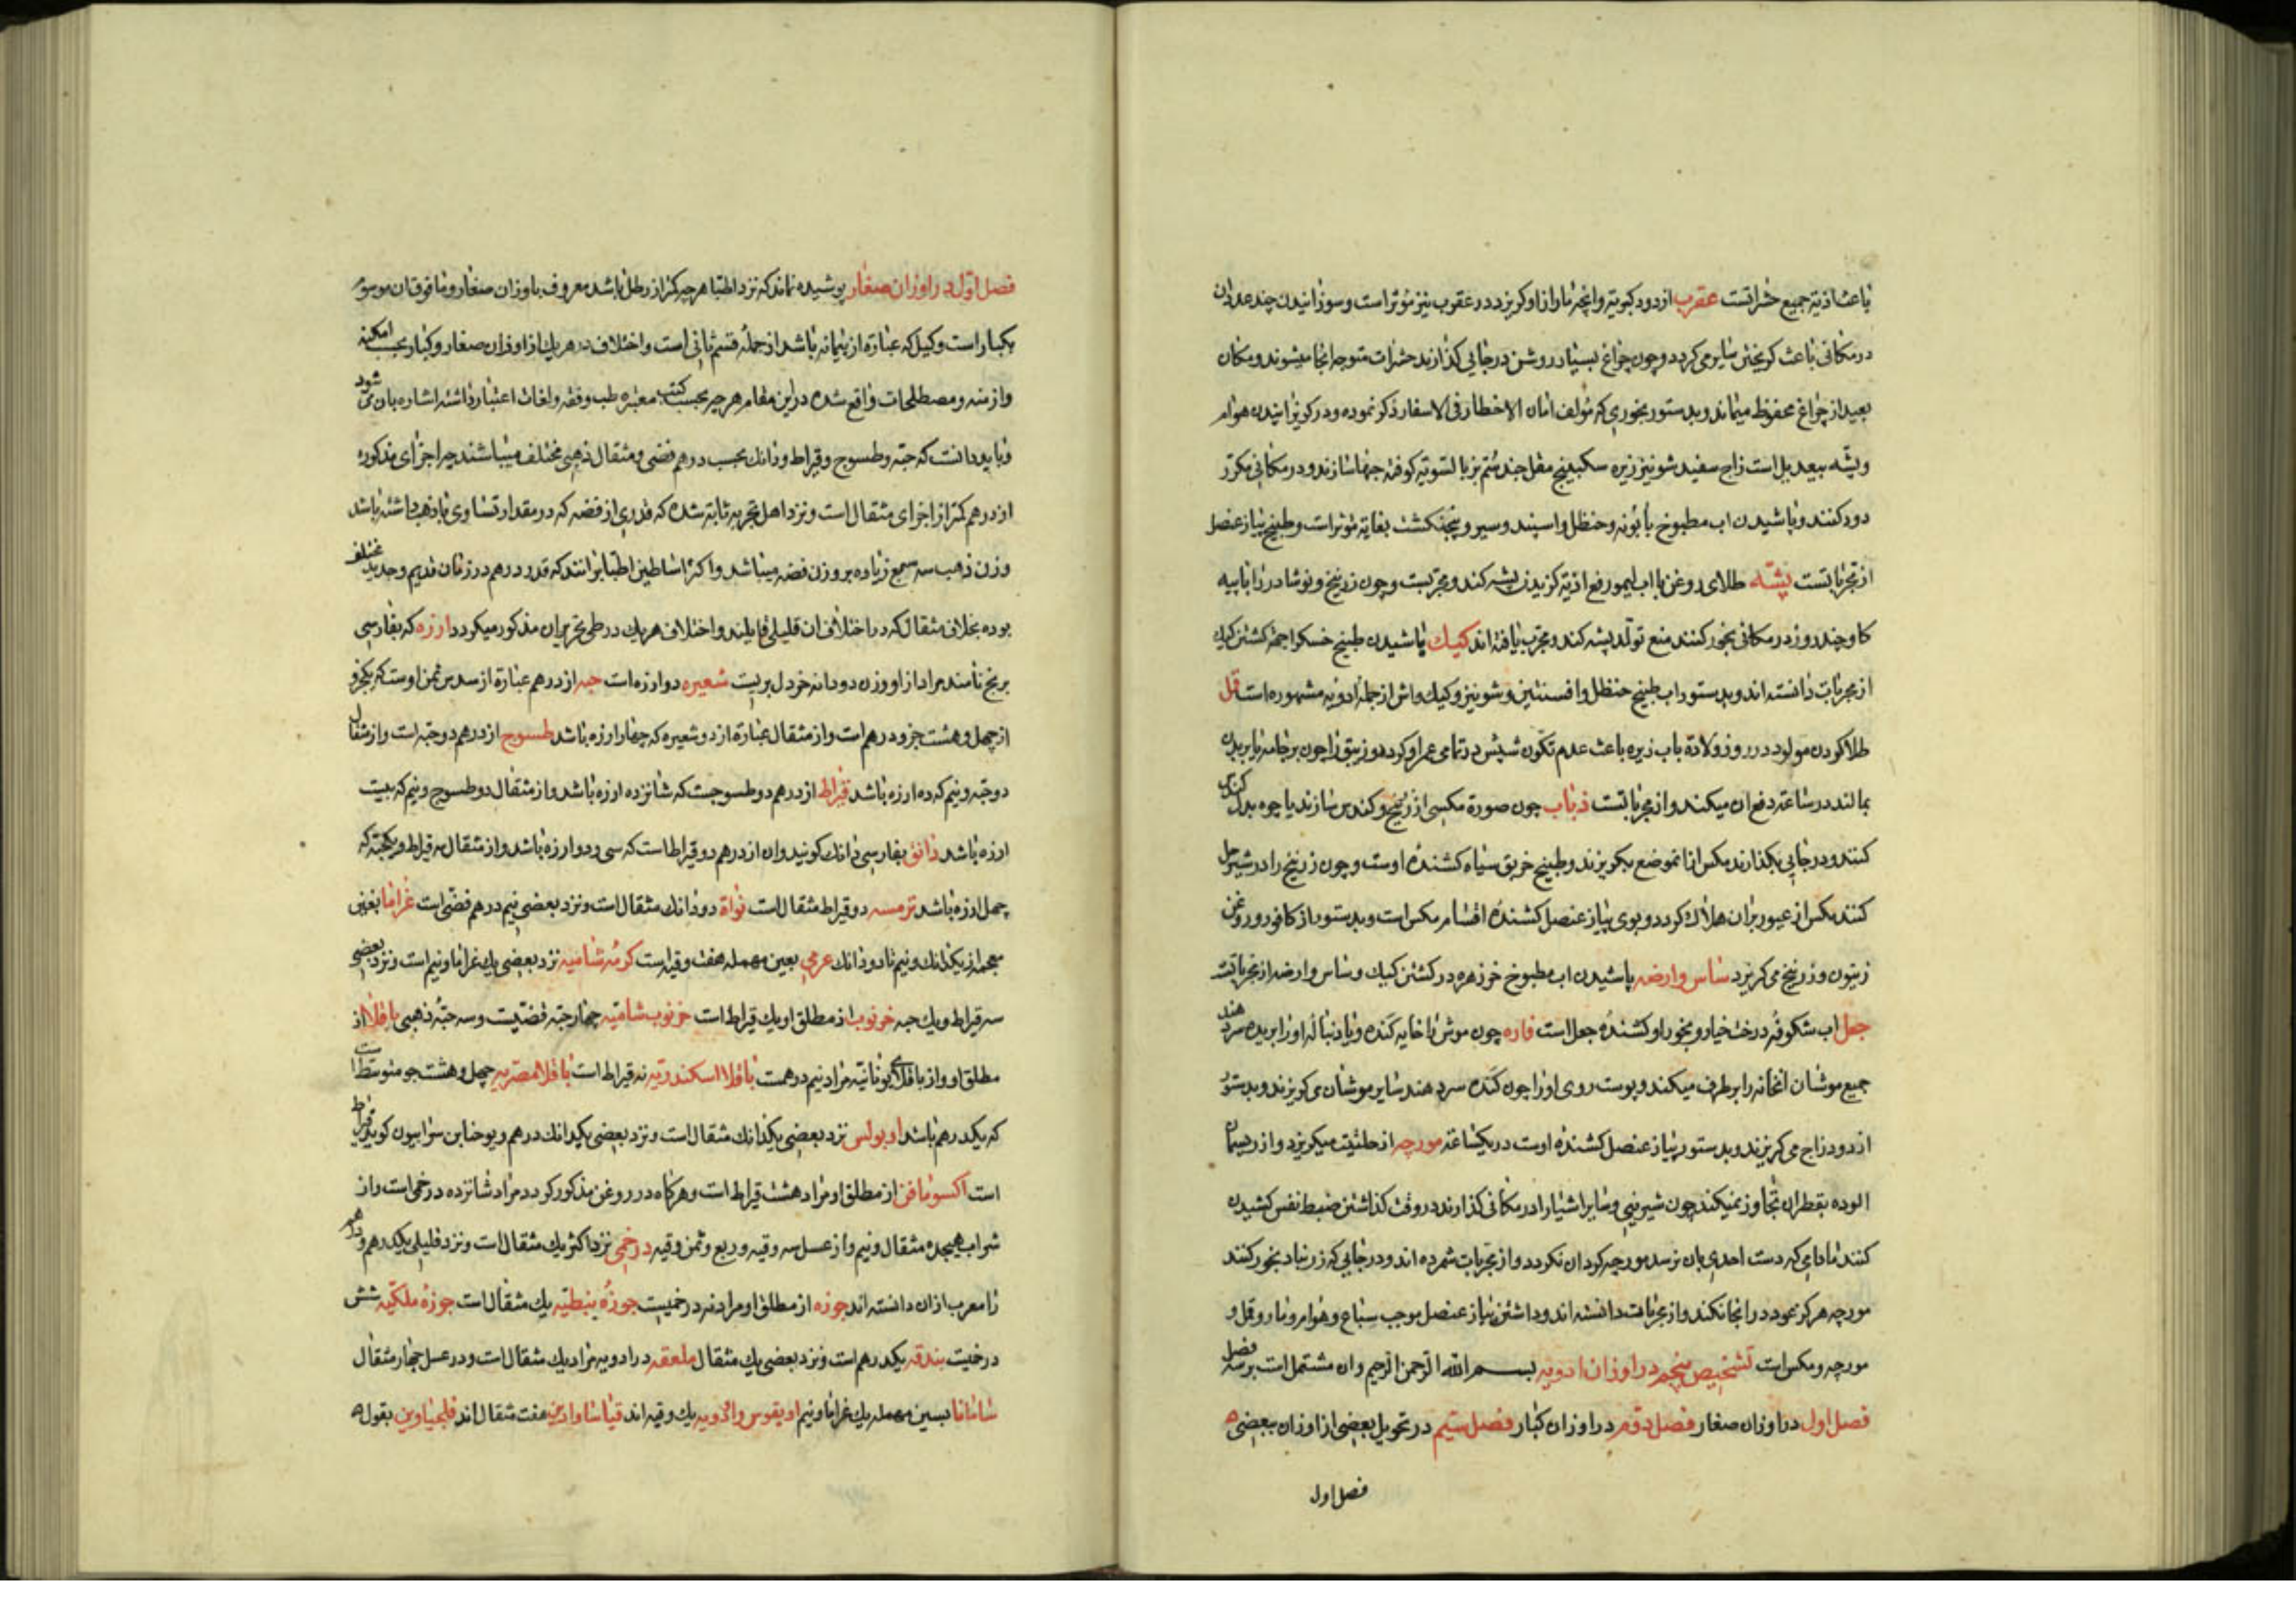 باعث اذیة جمیع حشراتست عقرب از دود کبریت وانچه مار از او کریزد در عقرب نیز مؤثر است وسوزانیدن چند عدد ان
در مکانی باعث کریختن سایر می کردد وچون چراغ بسیار روشن در جایی کذارند حشرات متوجه انجا میشوند ومکان
بعید از چراغ محفوظ میماند وبدستور بخوری که مؤلف امان الاخطار فی الاسفار ذکر نموده ودر کریزانیدن هوام
وپشه بیعدیل است زاج سفید شونیز زیره سکبینج مقل جند ستم بز بالسویه کوفته حبها سازند ودر مکانی مکرر
دود کنند وپاشیدن اب مطبوخ بابونه وحنظل واسپند وسیر وپنجنکشت بغایة مؤثر است وطبیخ پیاز عنصل
از مجرباتست پشه طلای روغن با اب لیمو رفع اذیة کزیدن پشه کند ومجربست وچون زرنیخ ونوشادر را با پیه
کاو چند روز در مکانی بخور کنند منع تولد پشه کند ومجرب یافته اند کیک پاشیدن طبیخ خسک را جهة کشتن کیک
از مجربات دانسته اند وبدستور اب طبیخ حنظل وافسنتین وشونیز وکیک واش از جمله ادویه مشهوره است قمل
طلا کردن مولود در روز ولادة باب زیره باعث عدم تکون شپش در تمامی عمر او کردد وزیبق را چون بر جامه یا بر بدن
بمالند در ساعة دفع ان میکند واز مجرباتست ذباب چون صورة مکسی از زرنیخ وکندس سازند یا چوه بدل کندس
کنند ودر جایی بکذارند مکس از انموضع بکریزند وطبیخ خربق سیاه کشنده اوست وچون زرنیخ را در شیر حل
کنند مکس از عبور بر ان هلاک کردد وبوی پیاز عنصل کشنده اقسام مکس است وبدستور از کافور وروغن
زیتون وزرنیخ می کریزد ساس وارضه پاشیدن اب مطبوخ خرزهره در کشتن کیک وساس وارضه از مجرباتست
جعل اب شکوفه درخت خیار وبخور او کشنده جعل است فاره چون موش را خایه کنده ویا دنباله او را بریده سر دهند
جمیع موشان انخانه را برطرف میکند وپوست روی او را چون کنده سر دهند سایر موشان می کریزند وبدستور
از دود زاج می کریزند وبدستور پیاز عنصل کشنده اوست در یکساعة مورچه از حلتیت میکریزد واز ریسمان
الوده بقطران تجاوز نمیکند چون شیرینی وسایر اشیا را در مکانی کذارند در وقت کذاشتن ضبط نفس کشیدن
کنند مادامی که دست احدی بان نرسد مورچه کرد ان نکردد واز مجربات شمرده اند ودر جایی که زرنباد بخور کنند
مورچه هرکز عود در انجا نکند واز مجربات دانسته اند وداشتن پیاز عنصل موجب سباع وهوام ومار وقمل و
مورچه ومکس است تشخیص پنجم در اوزان ادویه بسم الله الرحمن الرحیم وان مشتمل است بر سه فصل
فصل اول در اوزان صغار فصل دوم در اوزان کبار فصل سیم در تحویل بعضی از اوزان ببعضی
فصل اول
فصل اول در اوزان صغار پوشیده نماند که نزد اطبا هر چه کمتر از رطل باشد معروف باوزان صغار ومافوق ان موسوم
بکبار است وکیل که عبارة از پیمانه باشد از جمله قسم ثانی است واختلاف در هریک از اوزان صغار وکبار بحسب امکنه
وازمنه ومصطلحات واقع شده در این مقام هر چه بحسب کتب معتبره طب وفقه ولغات اعتبار داشته اشاره بان می شود
وباید دانست که حبه وطسوج وقیراط ودانک بحسب درهم فضی ومثقال ذهبی مختلف میباشند چه اجزای مذکوره
از درهم کمتر از اجزای مثقال است ونزد اهل تجربه ثابته شده که قدری از فضه که در مقدار تساوی با ذهب داشته باشد
وزن ذهب سه سبع زیاده بر وزن فضه میباشد واکثر اساطین اطبا برانند که قدر درهم در زمان قدیم وجدید مختلف
بوده بخلاف مثقال که در اختلاف ان قلیلی قایلند واختلاف هریک در طی تحریر ان مذکور میکردد ارزه که بفارسی
برنج نامند مراد از او وزن دو دانه خردل بریست شعیره دو ارزه است حبه از درهم عبارة از سدس ثمن اوست که یکجزو
از چهل وهشت جزو درهم است واز مثقال عبارة از دو شعیره که چهار ارزه باشد طسوج از درهم دو حبه است واز مثقال
دو حبه ونیم که ده ارزه باشد قیراط از درهم دو طسوجست که شانزده ارزه باشد واز مثقال دو طسوج ونیم که بیست
ارزه باشد دانق بفارسی دانک کویند وان از درهم دو قیراط است که سی ودو ارزه باشد واز مثقال سه قیراط ویکحبه که
چهل ارزه باشد ترمسه دو قیراط مثقال است نواة دو دانک مثقال است ونزد بعضی نیم درهم فضی است غراما بغین
معجمه از یکدانک ونیم تا دو دانک عرمی بعین مهمله هفت وقیه است کرمه شامیه نزد بعضی یک غراما ونیم است ونزد بعضی
سه قیراط ویک حبه خرنوب از مطلق او یک قیراط است خرنوب شامیه چهار حبه فضیست وسه حبه ذهبی باقلا از
مطلق او واز باقلای یونانیه مراد نیم درهمست باقلا اسکندریه نه قیراط است باقلا مصریه چهل وهشت جو متوسط است
که یکدرهم باشد اوبولس نزد بعضی یکدانک مثقال است ونزد بعضی یکدانک درهم ویوحنا بن سرابیون کوید قیراط
است اکسونافن از مطلق او مراد هشت قیراط است وهرکاه در روغن مذکور کردد مراد شانزده درخمی است واز
شراب هیجده مثقال ونیم واز عسل سه وقیه وربع وثمن وقیه درخمی نزد اکثر یک مثقال است ونزد قلیلی یکدرهم ودرهم
را معرب ازان دانسته اند جوزه از مطلق او مراد نه درخمیست جوزه نبطیه یک مثقال است جوزه ملکیه شش
درخمیست بندقه یکدرهم است ونزد بعضی یک مثقال ملعقه در ادویه مراد یک مثقال است ودر عسل چهار مثقال
سامانا بسین مهمله یک غراما ونیم اویقوس یک وقیه اند هفت مثقال اند بقول